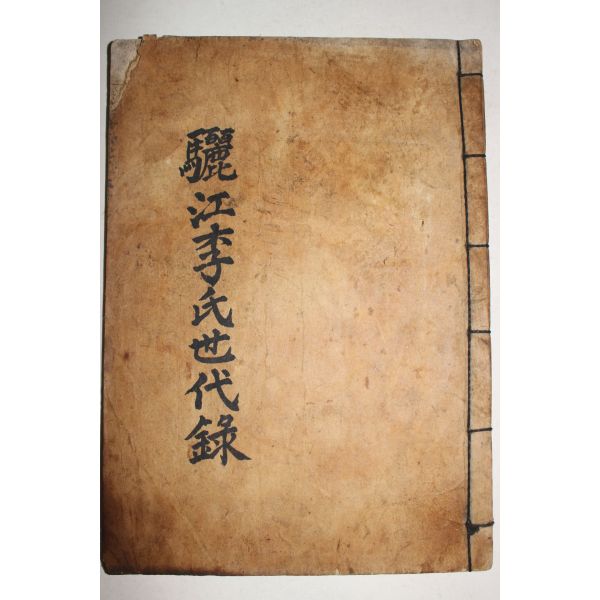 驪江李氏世代錄